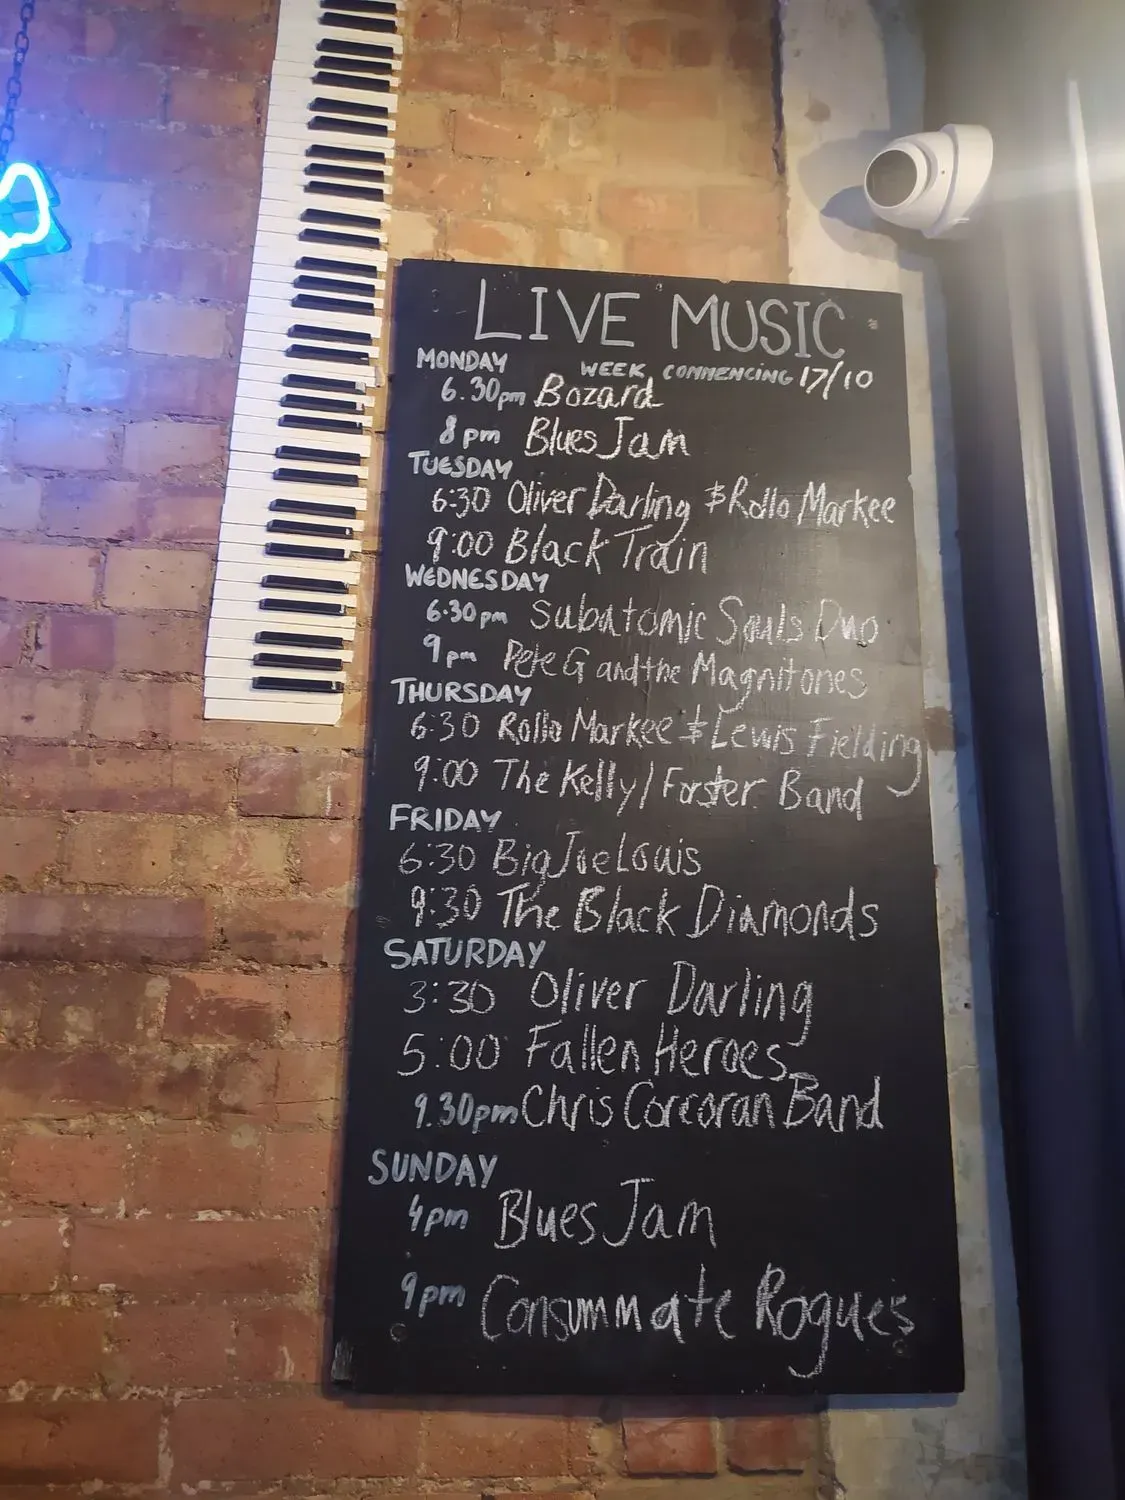 LIVE MUSIC
WEEK COMMENCING 17/10
MONDAY
6.30pm Bozard
8pm Blues Jam
TUESDAY
6:30 Oliver Darling & Rollo Markee
9:00 Black Train
WEDNESDAY
6.30pm Subatomic Souls Duo
9pm Pete G and the Magnitones
THURSDAY
6:30 Rollo Markee & Lewis Fielding
9:00 The Kelly/Forster Band
FRIDAY
6:30 Big Joe Louis
9:30 The Black Diamonds
SATURDAY
3:30 Oliver Darling
5:00 Fallen Heroes
9.30pm Chris Corcoran Band
SUNDAY
4pm Blues Jam
9pm Consummate Rogues